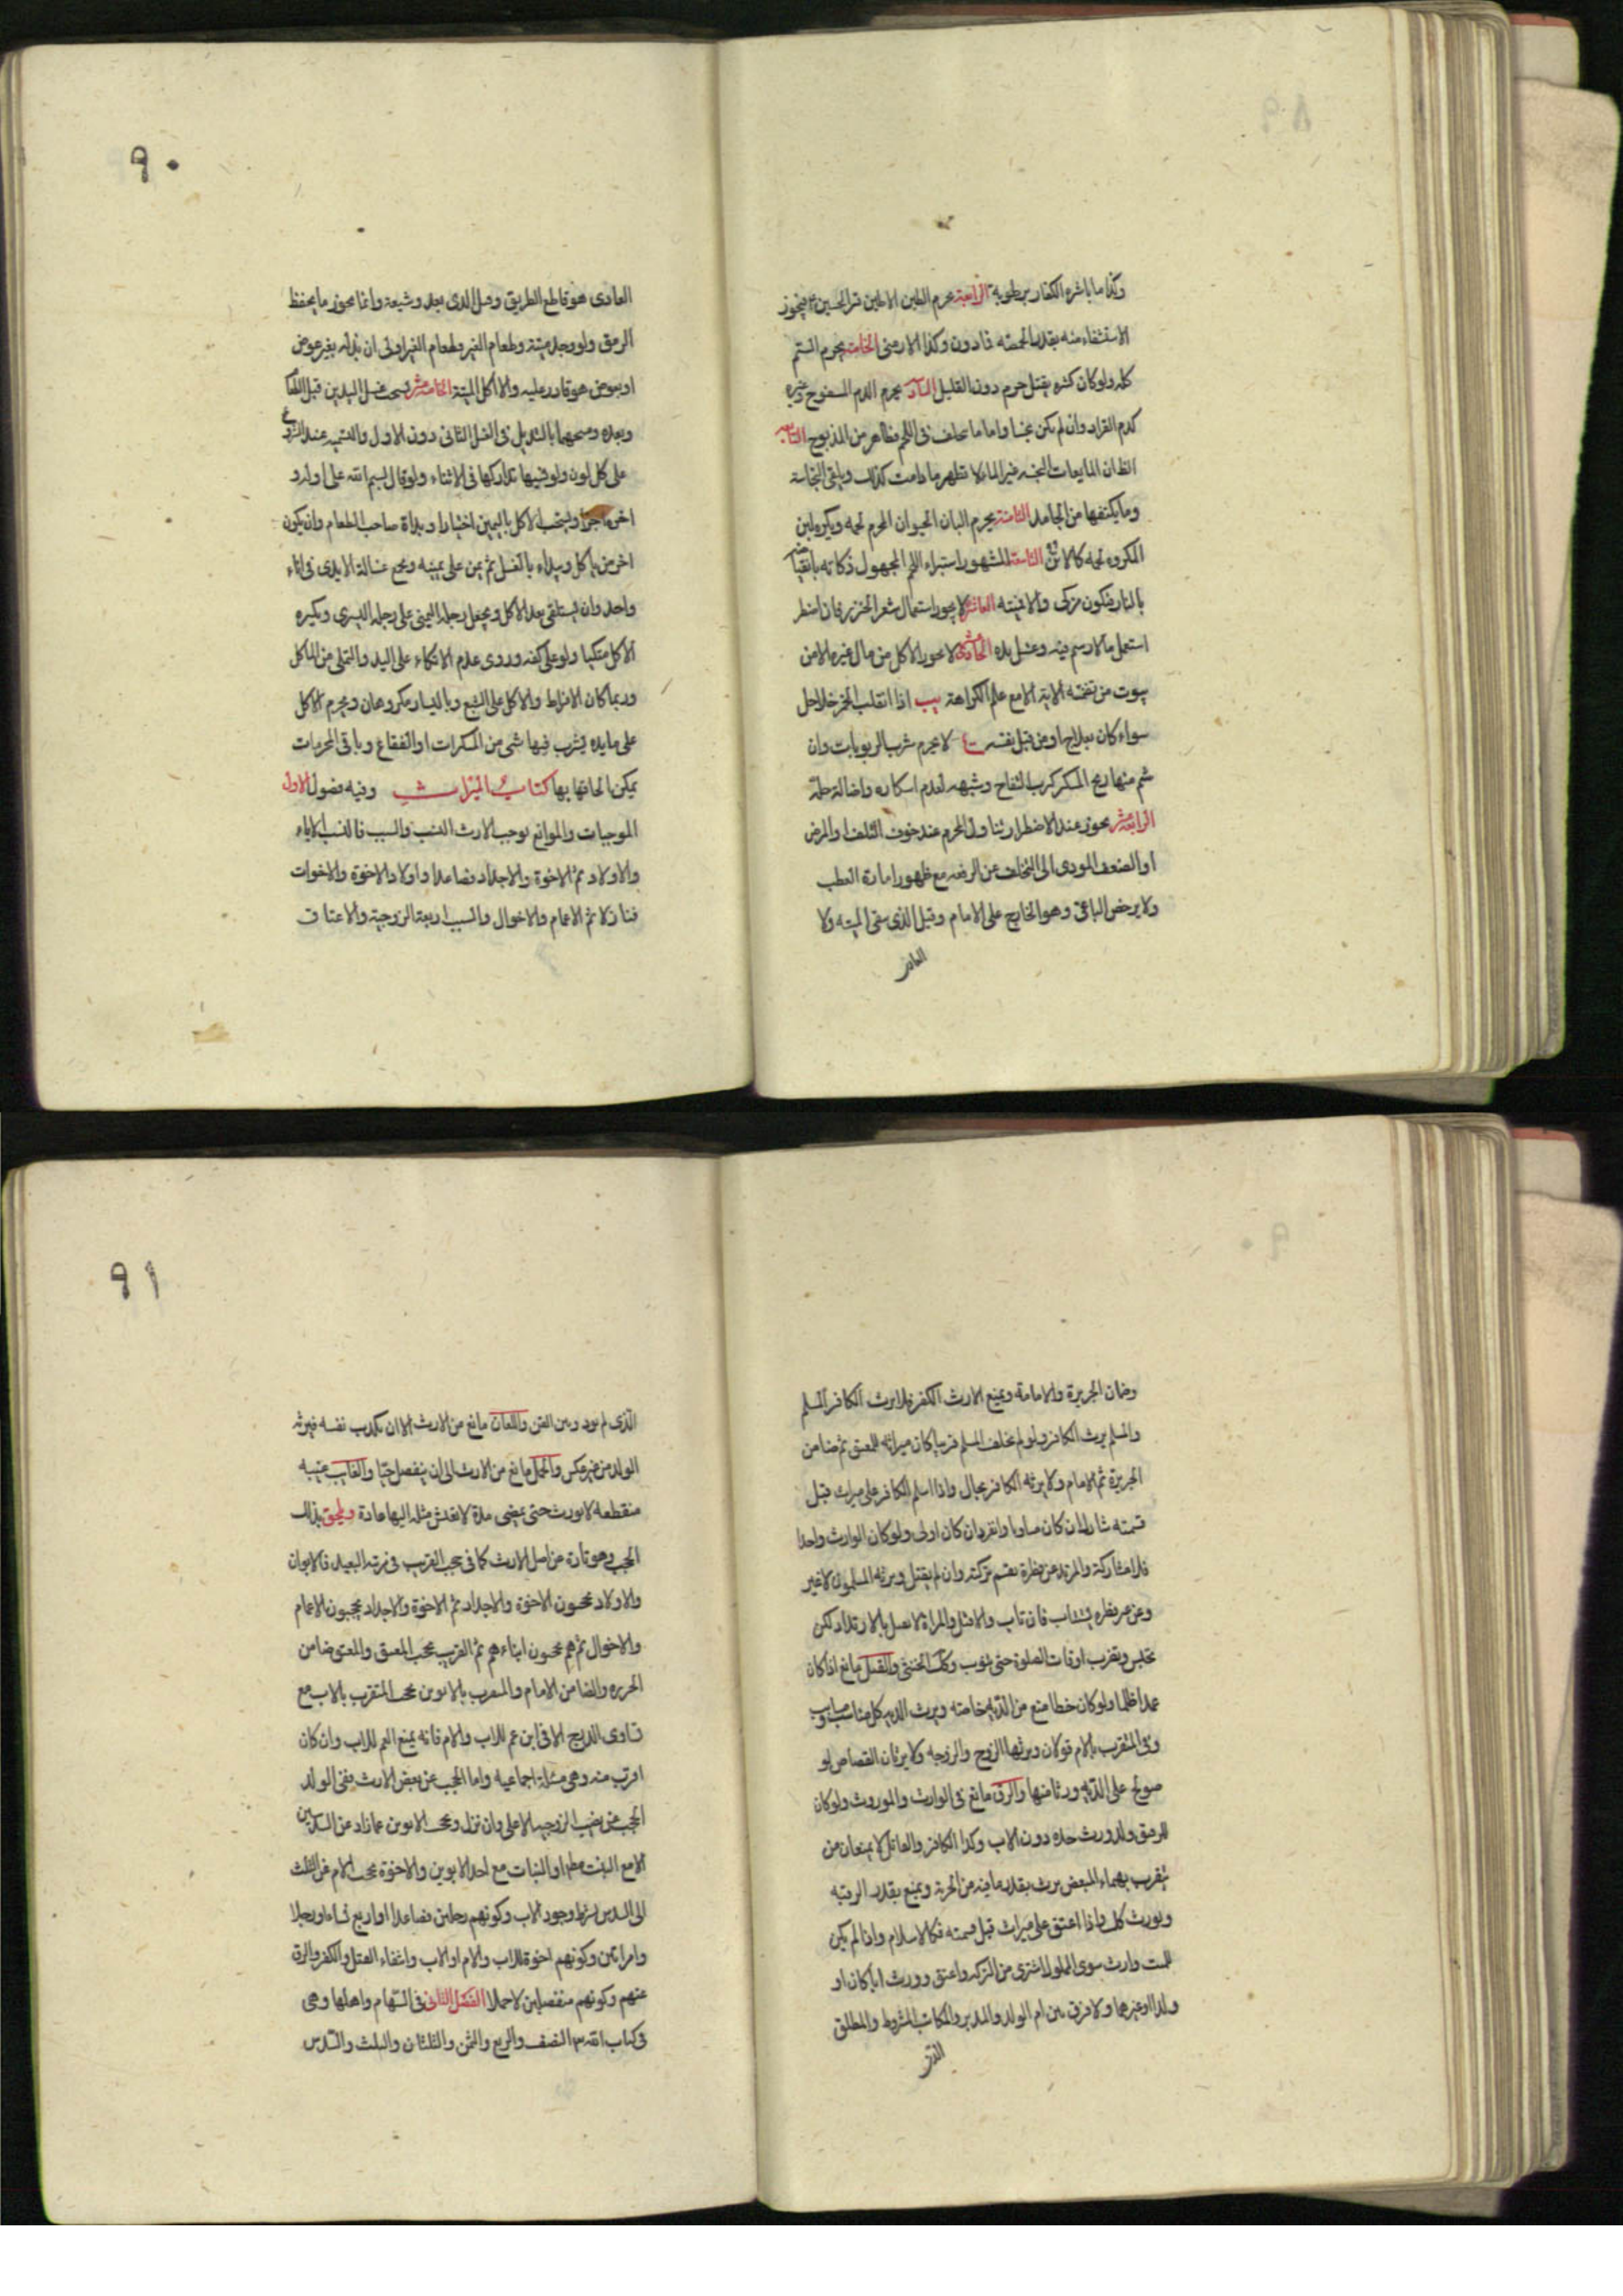 وكذا ما باشره الكفار برطوبة الرابعة يحرم الطين الا طين قبر الحسين ع فيجوز
الاستشفاء منه بقدر الحمصة فما دون وكذا الارمنى الخامسة يحرم السم
كله ولو كان كثيره يقتل حرم دون القليل السادسة يحرم الدم المسفوح وغيره
كدم القراد وان لم يكن نجسا واما ما يتخلف فى اللحم فطاهر من المذبوح السابعة
الظ ان المايعات النجسة غير الماء لا تطهر ما دامت كذلك ويلقى النجاسة
وما يكتنفها من الجامد الثامنة يحرم البان الحيوان المحرم لحمه ويكره لبن
المكروه لحمه كالاتن التاسعة المشهور استبراء اللحم المجهول ذكاته بانقباضه
بالنار فيكون مذكى والا فميتة العاشرة لا يجوز استعمال شعر الخنزير فان اضطر
استعمل ما لا دسم فيه وغسل يده الحادية عشر لا يجوز الاكل من مال غيره الا من
بيوت من تضمنته الاية الا مع علم الكراهة يب اذا انقلب الخمر خلا حل
سواء كان بعلاج او من قبل نفسه لا يحرم شرب الربوبات وان
شم منها ريح المسكر كرب التفاح وشبهه لعدم اسكاره واصالة حله
الرابعة عشر يجوز عند الاضطرار تناول المحرم عند خوف التلف او المرض
او الضعف المودى الى التخلف عن الرفقه مع ظهور امارة العطب
ولا يرخص الباغى وهو الخارج على الامام وقيل الذى يبغى الميته ولا
العادى
٩٠
العادى هو قاطع الطريق وقيل الذى يعدو شبعه وانما يجوز ما يحفظ
الرمق ولو وجد ميتة وطعام الغير فطعام الغير اولى ان بذله بغير عوض
او بعوض هو قادر عليه والا اكل الميتة الخامسة عشر يستحب غسل اليدين قبل الطعام
وبعده ومسحهما بالمنديل فى الغسل الثانى دون الاول والتسمية عند الشروع
على كل لون ولو نسيها تداركها فى الاثناء ولو قال بسم الله على اوله و
اخره اجزأ ويستحب الاكل باليمين اختيارا وبداة صاحب الطعام وان يكون
اخر من ياكل ويبداء بالغسل ثم بمن على يمينه ويجمع غسالة الايدى فى اناء
واحد وان يستلقى بعد الاكل ويجعل رجله اليمنى على رجله اليسرى ويكره
الاكل متكيا ولو على كفه وروى عدم الاتكاء على اليد والتملى من الماكل
وربما كان الافراط والاكل على الشبع وباليسار مكروهان ويحرم الاكل
على مايدة يشرب فيها شى من المسكرات او الفقاع وباقى المحرمات
يمكن الحاقها بها كتاب الميراث وفيه فصول الاول
الموجبات والموانع يوجب الارث النسب والسبب فالنسب الاباء
والاولاد ثم الاخوة والاجداد فصاعدا واولاد الاخوة والاخوات
فنازلا ثم الاعمام والاخوال والسبب اربعة الزوجية والاعتاق
وضمان الجريرة والامامة ويمنع الارث الكفر فلا يرث الكافر المسلم
والمسلم يرث الكافر ولو لم يخلف المسلم قريبا كان ميراثه للمعتق ثم ضامن
الجريرة ثم الامام ولا يرثه الكافر بحال واذا اسلم الكافر على ميراث قبل
قسمته شارك ان كان مساويا وانفرد ان كان اولى ولو كان الوارث واحدا
فلا مشاركة والمرتد عن فطرة تقسم تركته وان لم يقتل ويرثه المسلمون لا غير
وعن غير فطره يستتاب فان تاب والا قتل والمراة لا تقتل بالارتداد لكن
تحبس وتضرب اوقات الصلوة حتى تتوب وكذلك الخنثى والقتل مانع اذا كان
عمدا ظلما ولو كان خطا منع من الدية خاصته ويرث الدية كل مناسب ومسابب
وفى المتقرب بالام قولان ويرثها الزوج والزوجه ولا يرثان القصاص لو
صولح على الدية ورثا منها والرق مانع فى الوارث والموروث ولو كان
للرق ولد ورث جده دون الاب وكذا الكافر والقاتل لا يمنعان من
يتقرب بهما والمبعض يرث بقدر ما فيه من الحرية ويمنع بقدر الرقية
ويورث كذلك واذا اعتق على ميراث قبل قسمته فكالاسلام واذا لم يكن
للميت وارث سوى المملوك اشترى من التركة واعتق وورث ابا كان او
ولدا او غيرهما ولا فرق بين ام الولد والمدبر والمكاتب المشروط والمطلق
الذى
٩١
الذى لم يود وبين القن واللعان مانع من الارث الا ان يكذب نفسه فيرثه
الولد من غير عكس والحمل مانع من الارث الى ان ينفصل حيا والغايب غيبه
منقطعه لا يورث حتى يمضى مدة لا يعيش مثله اليها عادة ويلحق بذلك
الحجب وهو تارة عن اصل الارث كما فى حجب القريب فى مرتبه البعيد فالابوان
والاولاد يحجبون الاخوة والاجداد ثم الاخوة والاجداد يحجبون الاعمام
والاخوال ثم هم يحجبون ابناءهم ثم القريب يحجب المعتق والمعتق ضامن
الجريره والضامن الامام والمتقرب بالابوين يحجب المتقرب بالاب مع
تساوى الدرج الا فى ابن عم للاب والام فانه يمنع العم للاب وان كان
اقرب منه وهى مسئلة اجماعيه واما الحجب عن بعض الارث ففى الولد
الحجب عن نصيب الزوجيه الاعلى وان نزل ويحجب الابوين عما زاد عن السدسين
الا مع البنت مطم او البنات مع احد الابوين والاخوة يحجب الام عن الثلث
الى السدس بشرط وجود الاب وكونهم رجلين فصاعدا او اربع نساء او رجلا
وامراتين وكونهم اخوة للاب والام او الاب وانتفاء القتل والكفر والرق
عنهم وكونهم منفصلين لا حملا الفصل الثانى فى السهام واهلها وهى
فى كتاب الله النصف والربع والثمن والثلثان والثلث والسدس